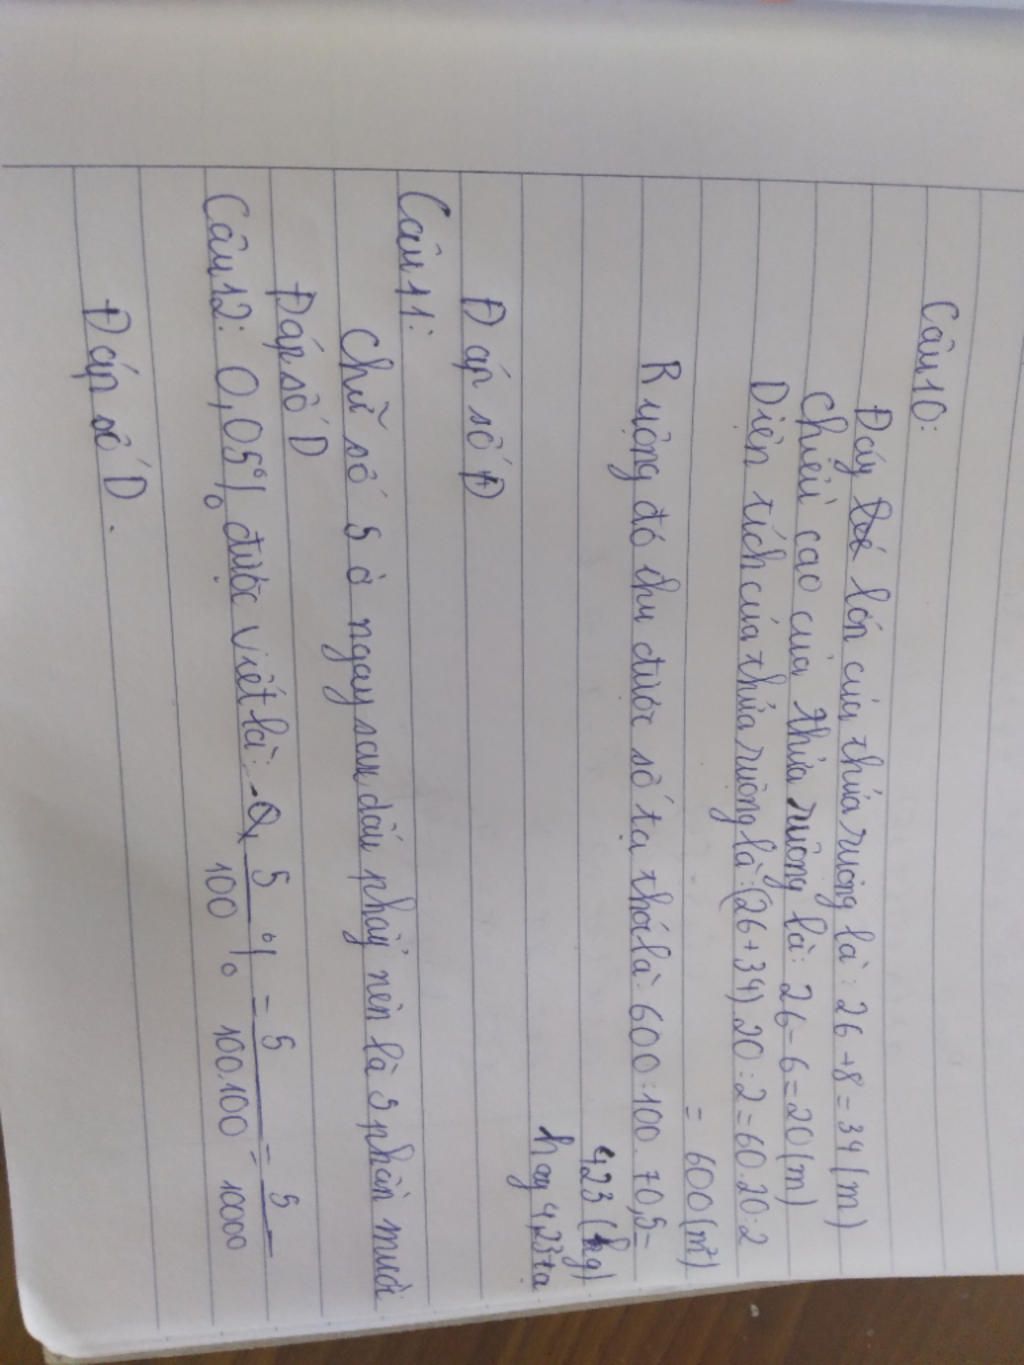 Câu 10:
Đáy lớn của thửa ruộng là: 26+8=34(m)
Chiều cao của thửa ruộng là: 26-6=20(m)
Diện tích của thửa ruộng là:(26+34).20:2=60.20:2
= 600(m²)
Ruộng đó thu được số tạ thóc là: 600:100.70,5=
423 (kg)
hay 4,23 tạ
Đáp số D
Câu 11:
Chữ số 5 ở ngay sau dấu phẩy nên là 5 phần mười
Đáp số D
Câu 12: 0,05% được viết là: 5/100 % = 5/100.100 = 5/10000
Đáp số D.